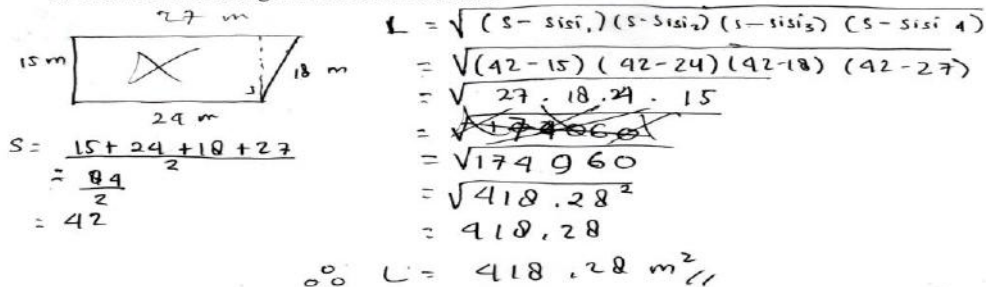 27 m
15 m
18 m
24 m
S = 15 + 24 + 18 + 27
2
= 84
2
= 42
L = √(S - sisi₁)(S - sisi₂)(S - sisi₃)(S - sisi 4)
= √(42-15)(42-24)(42-18)(42-27)
= √27 . 18 . 24 . 15
= √174960
= √418.28²
= 418,28
∴ L = 418.28 m²//